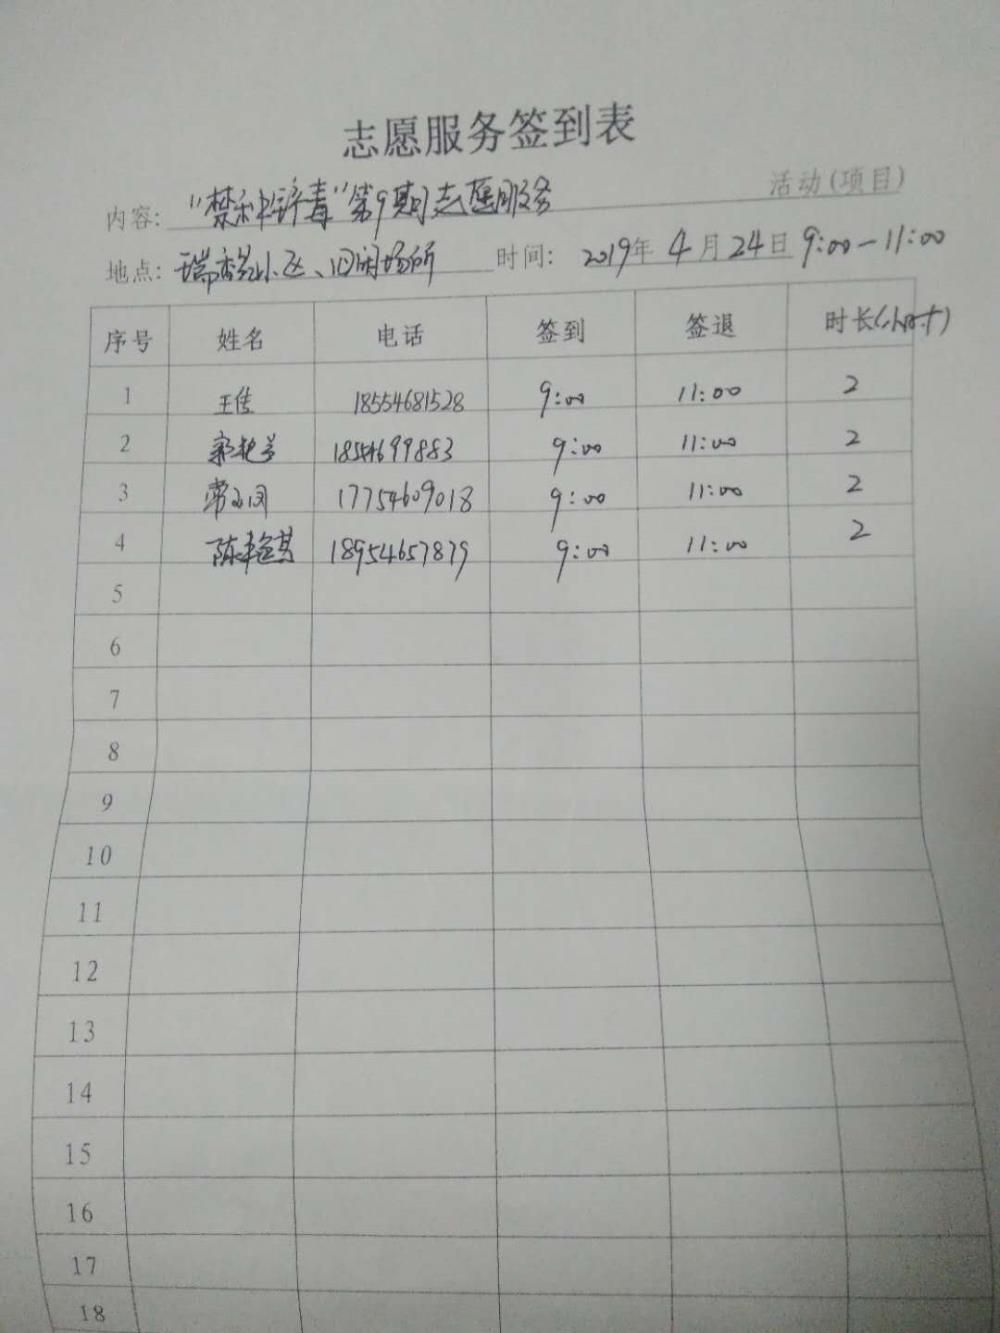 志愿服务签到表
内容: "禁种铲毒"第9期志愿服务 活动(项目)
地点: 瑞 小区、 闲场所 时间: 2019年 4月 24日 9:00-11:00
序号 姓名 电话 签到 签退 时长(小时)
1 王传 18554681528 9:00 11:00 2
2 9:00 11:00 2
3 常 17754609018 9:00 11:00 2
4 陈 18954657879 9:00 11:00 2
5
6
7
8
9
10
11
12
13
14
15
16
17
18